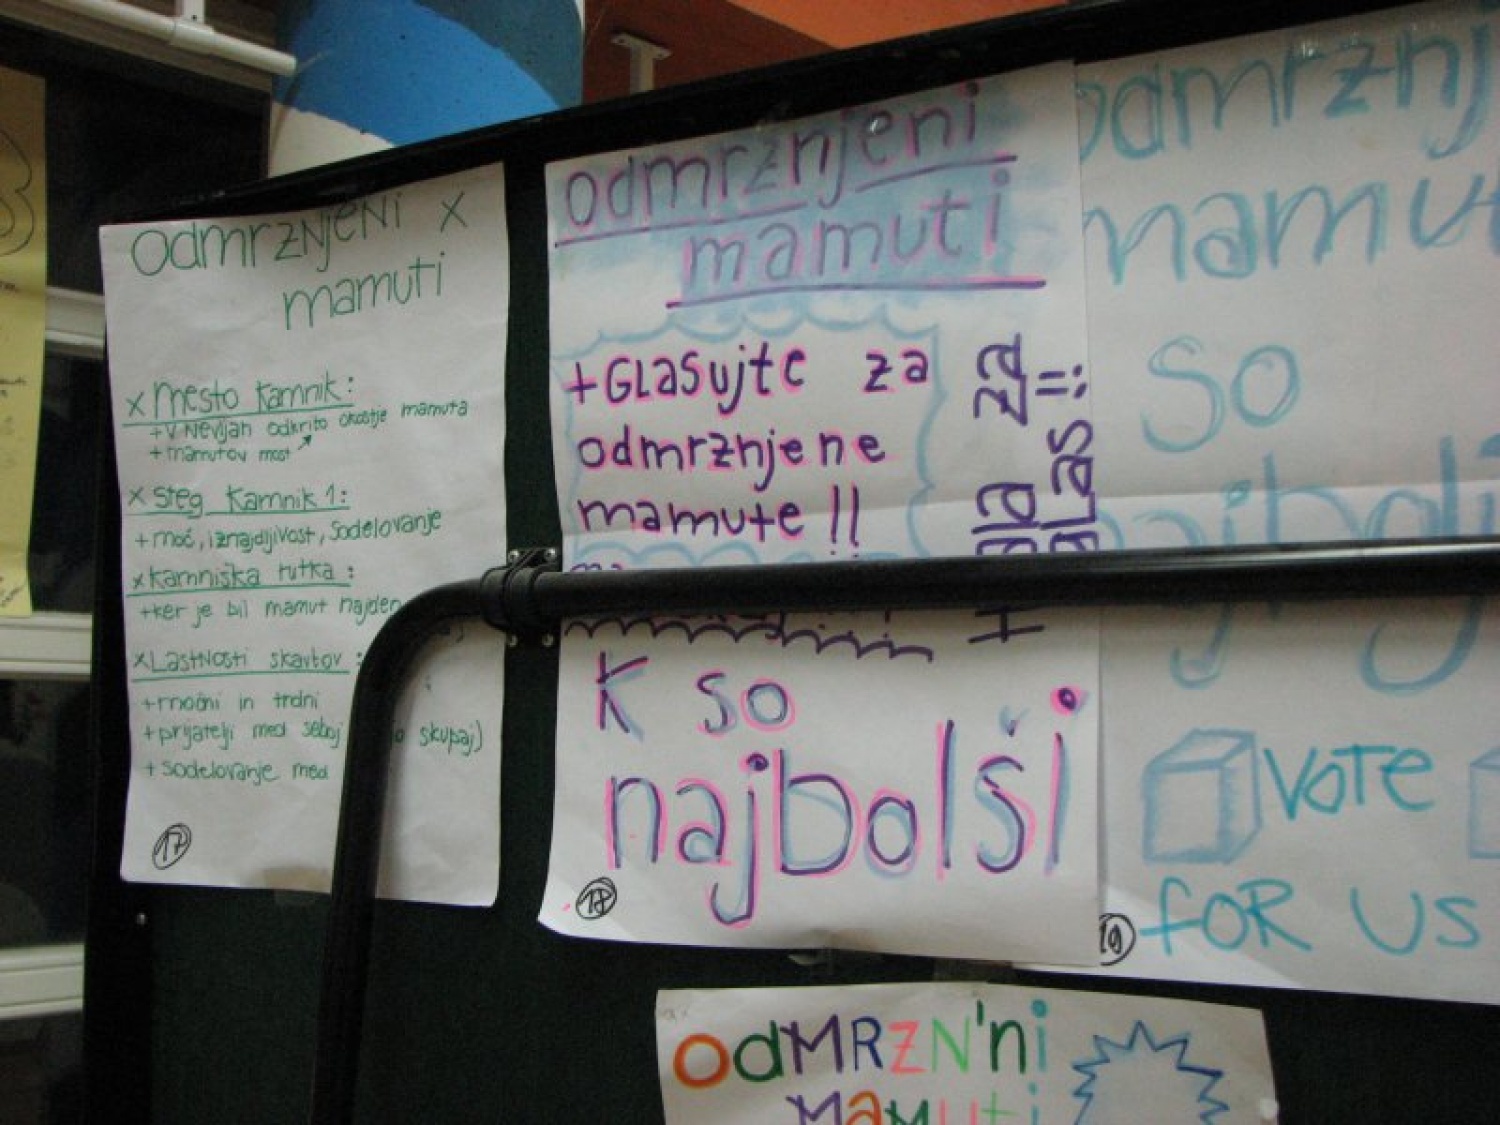 odmrznjeni x
mamuti
x mesto Kamnik:
+ v Nevljah odkrito okostje mamuta
+ mamutov most
x steg Kamnik 1:
+ moč, iznajdljivost, sodelovanje
x kamniška rutka:
+ ker je bil mamut najden
x Lastnosti skavtov:
+ močni in trdni
+ prijatelji med seboj
skupaj)
+ sodelovanje med
17
odmrznjeni
mamuti
+ GLasujte za
odmrznjene
mamute !!
za
GLas !!:
K so
najbolši
18
odmrznj
mamut
so
VOTE
FOR US
19
OdMRZN'ni
MaMuti